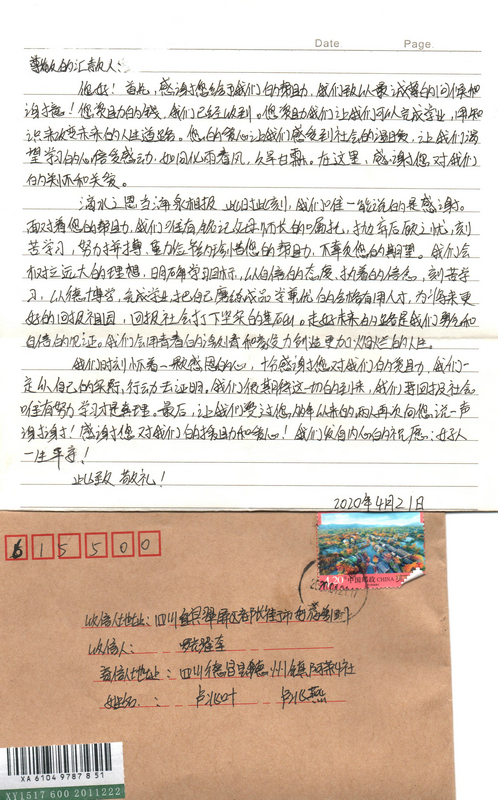 Date Page.
尊敬的汇款人:
您好!首先,感谢您给予我们的帮助,我们致以最诚挚的问候和
谢意!您资助的钱,我们已经收到。您资助我们让我们可以完成学业,用知
识来改变未来的人生道路。您的爱心让我们感受到社会的温暖,让我们渴
望学习的心倍受感动,如同化雨春风,久旱甘霖。在这里,感谢您对我们
的和关爱。
滴水之恩当涌泉相报 此时此刻,我们唯一能说的是感谢。
面对着您的帮助,我们唯有铭记父母师长的嘱托,刻
苦学习,努力拼搏,您的帮助,不辜负您的期望。我们会
树立远大的理想,明确学习目标,以自信的态度,执着的信念,刻苦学
习,以德博学,完成学业,把自己磨练成品学兼优的合格有用人才,为将来更
好的回报祖国,回报社会打下坚实的基石。走好未来的路是我们努力和
自信的见证。我们会用青春的和努力创造更加灿烂的人生。
我们时刻怀着一颗感恩的心,十分感谢您对我们的资助,我们一
定从自己的实际行动去证明。我们很期待这一切的到来,我们要回报社会
唯有努力学习才是真理。最后,让我们受过您的两人再次向您说一声
谢谢!感谢您对我们的援助和爱心!我们发自内心的祝愿:好人
一生平安!
此致 敬礼!
2020年4月21日
615500
4.20 中国邮政 CHINA
收信人地址:四川宜宾翠屏区
收信人:
寄信人地址:四川德昌县德州镇阿荣4社
姓名: 卢 卢燕
XA 6104 9787 8 51
XY1517 600 2011222